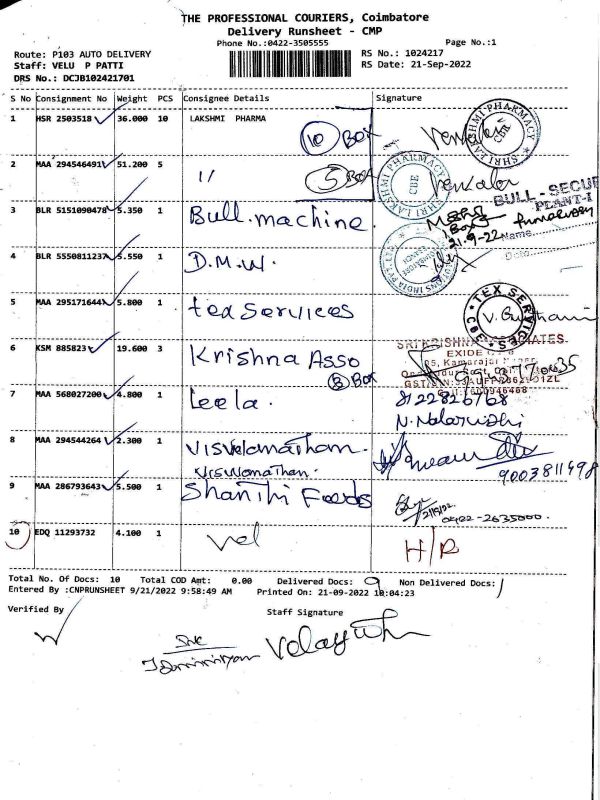 THE PROFESSIONAL COURIERS, Coimbatore
Delivery Runsheet - CMP
Phone No.:0422-3505555
Page No.:1
Route: P103 AUTO DELIVERY
RS No.: 1024217
Staff: VELU P PATTI
RS Date: 21-Sep-2022
DRS No.: DCJB102421701
S No Consignment No Weight PCS Consignee Details Signature
1 HSR 2503518 36.000 10 LAKSHMI PHARMA
10 BOX
SHRI LAKSHMI PHARMACY CBE
2 MAA 294546491 51.200 5 11
5 BOX
SHRI LAKSHMI PHARMACY CBE
BULL - SECU
PLANT-I
3 BLR 5151090478 5.350 1 Bull.machine.
1 Box
21.9-22 Name
Date
4 BLR 5550811237 5.550 1 D.M.W.
5 MAA 295171644 5.800 1 tex Services
TEX SERVICES CBE
6 KSM 885823 19.600 3 Krishna Asso
3 Box
SRI KRISHNA ASSOCIATES
EXIDE
7 MAA 568027200 4.800 1 Leela.
8122826768
8 MAA 294544264 2.300 1 Visvelamatham.
Visuvamathan.
9003811498
9 MAA 286793643 5.500 1 Shanthi Foods
0422-2635000.
10 EDQ 11293732 4.100 1 Vel
H/R
Total No. Of Docs: 10 Total COD Amt: 0.00 Delivered Docs: 9 Non Delivered Docs: 1
Entered By :CNPRUNSHEET 9/21/2022 9:58:49 AM Printed On: 21-09-2022 10:04:23
Verified By
Staff Signature